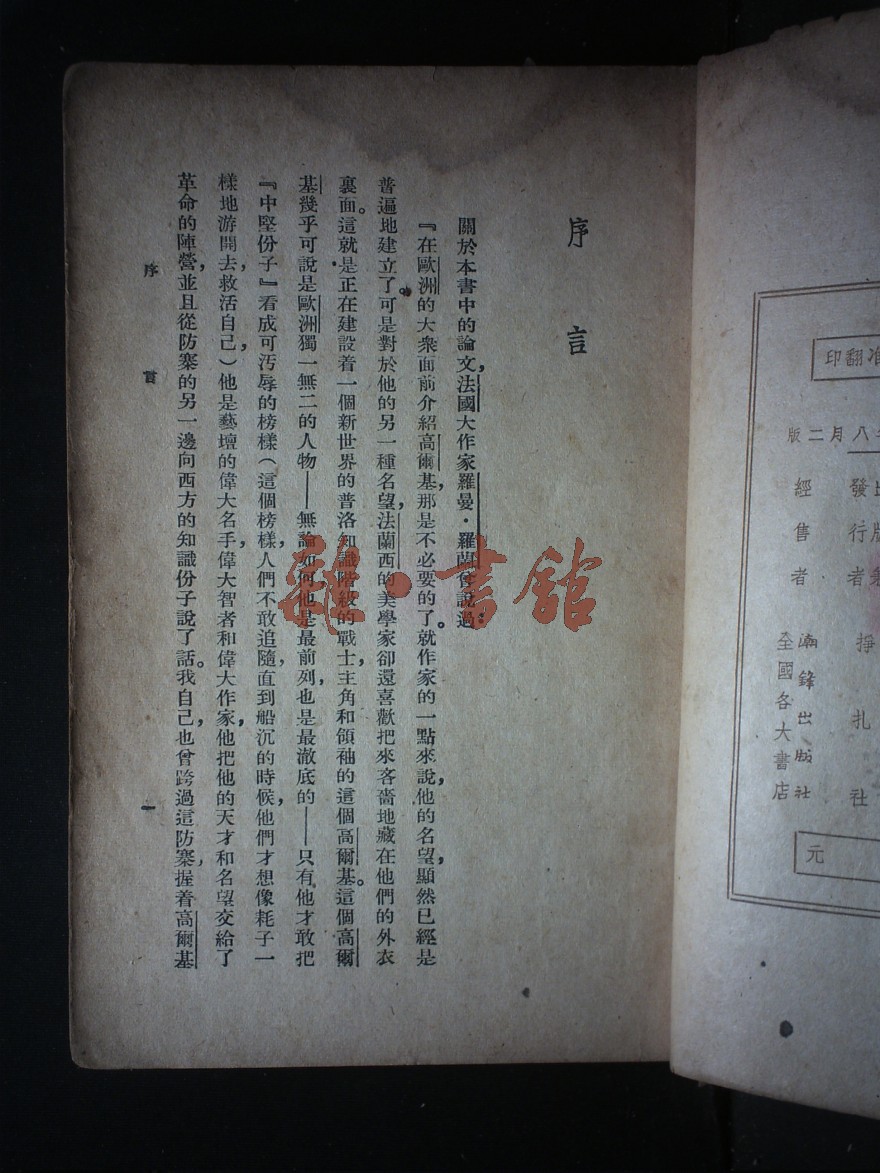 准翻印
八月二版
發行者
掙扎社
經售者
潮鋒出版社
全國各大書店
元
序言
關於本書中的論文，法國大作家羅曼·羅蘭曾說過：
『在歐洲的大衆面前介紹高爾基，那是不必要的了。就作家的一點來說，他的名望，顯然已經是
普遍地建立了。可是對於他的另一種名望，法蘭西的美學家卻還喜歡把來吝嗇地藏在他們的外衣
裏面。這就是正在建設着一個新世界的普洛知識階級的戰士，主角和領袖的這個高爾基。這個高爾
基幾乎可說是歐洲獨一無二的人物——無論如何他是最前列，也是最澈底的——只有他才敢把
『中堅份子』看成可汚辱的榜樣（這個榜樣，人們不敢追隨，直到船沉的時候，他們才想像耗子一
樣地游開去，救活自己，）他是藝壇的偉大名手，偉大智者和偉大作家，他把他的天才和名望交給了
革命的陣營，並且從防寨的另一邊向西方的知識份子說了話。我自己，也曾跨過這防寨，握着高爾基
序言 一
雜·書館